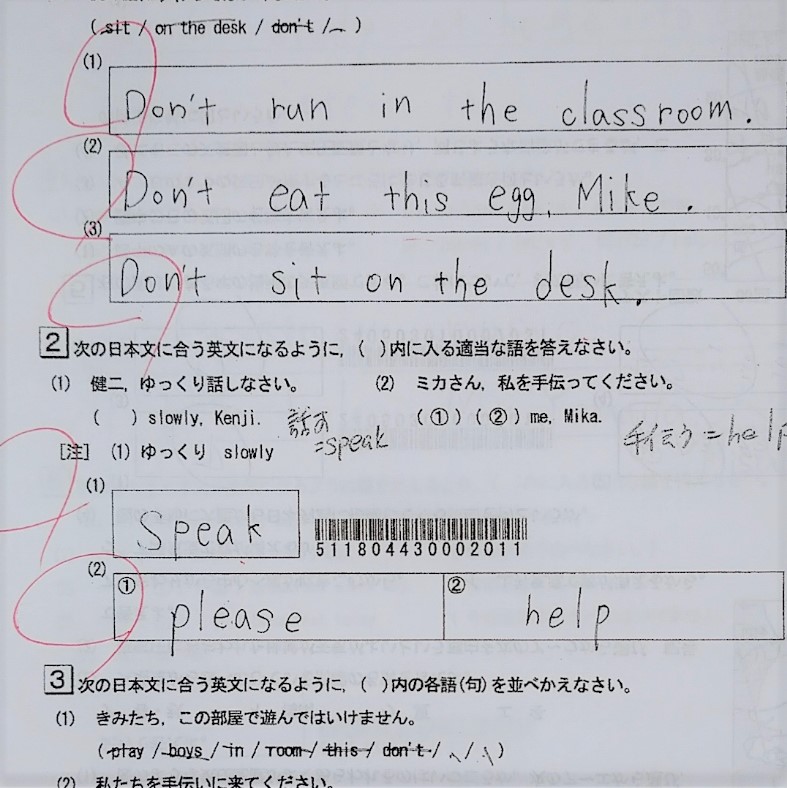 ( sit / on the desk / don't / 、 )
(1)
Don't run in the classroom.
(2)
Don't eat this egg, Mike.
(3)
Don't sit on the desk.
2 次の日本文に合う英文になるように, ( )内に入る適当な語を答えなさい。
(1) 健二, ゆっくり話しなさい。 (2) ミカさん, 私を手伝ってください。
( ) slowly, Kenji. 話す =speak ( ① ) ( ② ) me, Mika. 手伝う=help
[注] (1) ゆっくり slowly
(1)
speak
511804430002011
(2) ① please ② help
3 次の日本文に合う英文になるように, ( )内の各語(句)を並べかえなさい。
(1) きみたち, この部屋で遊んではいけません。
( play / boys / in / room / this / don't / 、 / 、 )
(2) 私たちを手伝いに来てください。